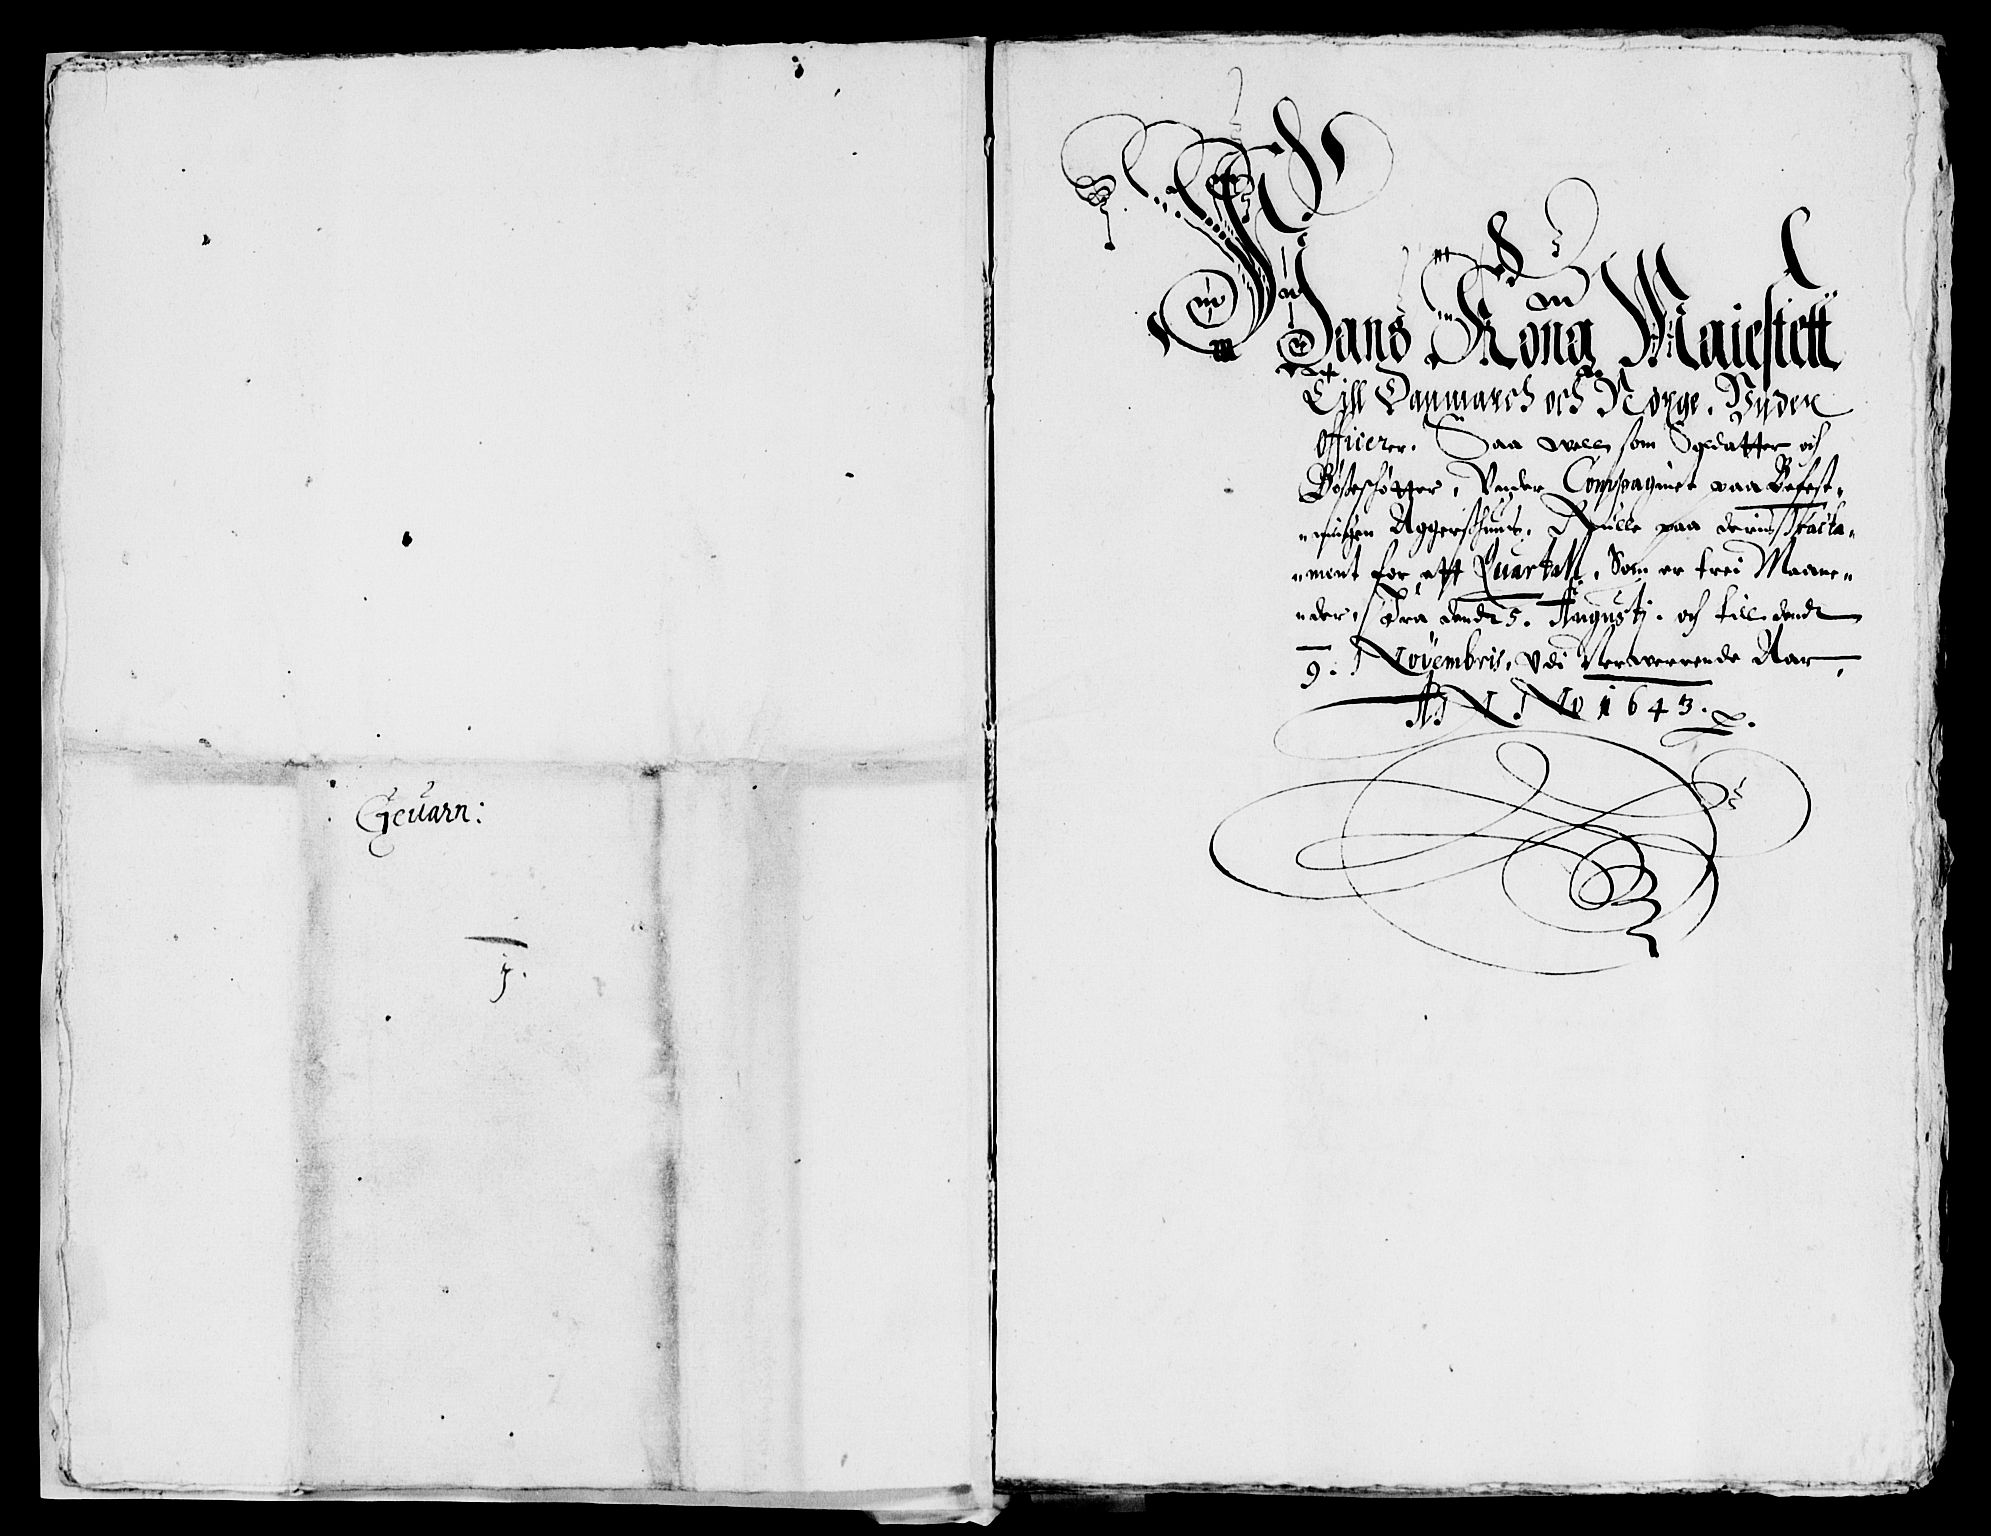 Gevarn:
j.
Hans Kong Maiestett
Till Danmarch och Norge. Vnder
officerer. Saa well som Soldatter och
Bösseschötter, Vnder Compagniet paa Befest„
„ningen Aggerszhuus, Rulle paa deris Tracta„
„ment for ett Quartall, Som er trei Maane„
„der, Fra dend 5. Augustj. och till dend
9. Novembris, Vdi Nerwerende Aar,
ANNO 1643.